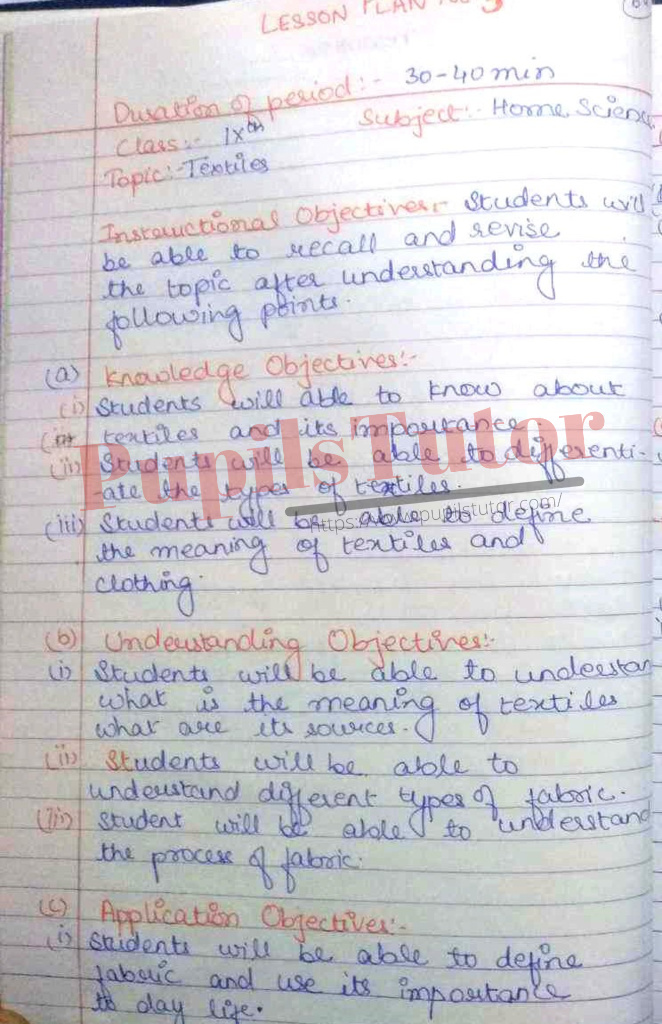 LESSON PLAN No 3
Duration of period:- 30-40 min
Class:- IXth Subject:- Home Science
Topic:- Textiles
Instructional Objectives:- Students will
be able to recall and revise
the topic after understanding the
following points.
(a) Knowledge Objectives:-
(i) Students will able to know about
textiles and its importance.
(ii) Students will be able to differenti-
-ate the types of textiles.
(iii) Students will be able to define
the meaning of textiles and
clothing.
(b) Understanding Objectives:-
(i) Students will be able to understan
what is the meaning of textiles
what are its sources.
(ii) Students will be able to
understand different types of fabric.
(iii) Student will be able to understand
the process of fabric.
(c) Application Objectives:-
(i) Students will be able to define
fabric and use its importance
to day life.
PupilsTutor